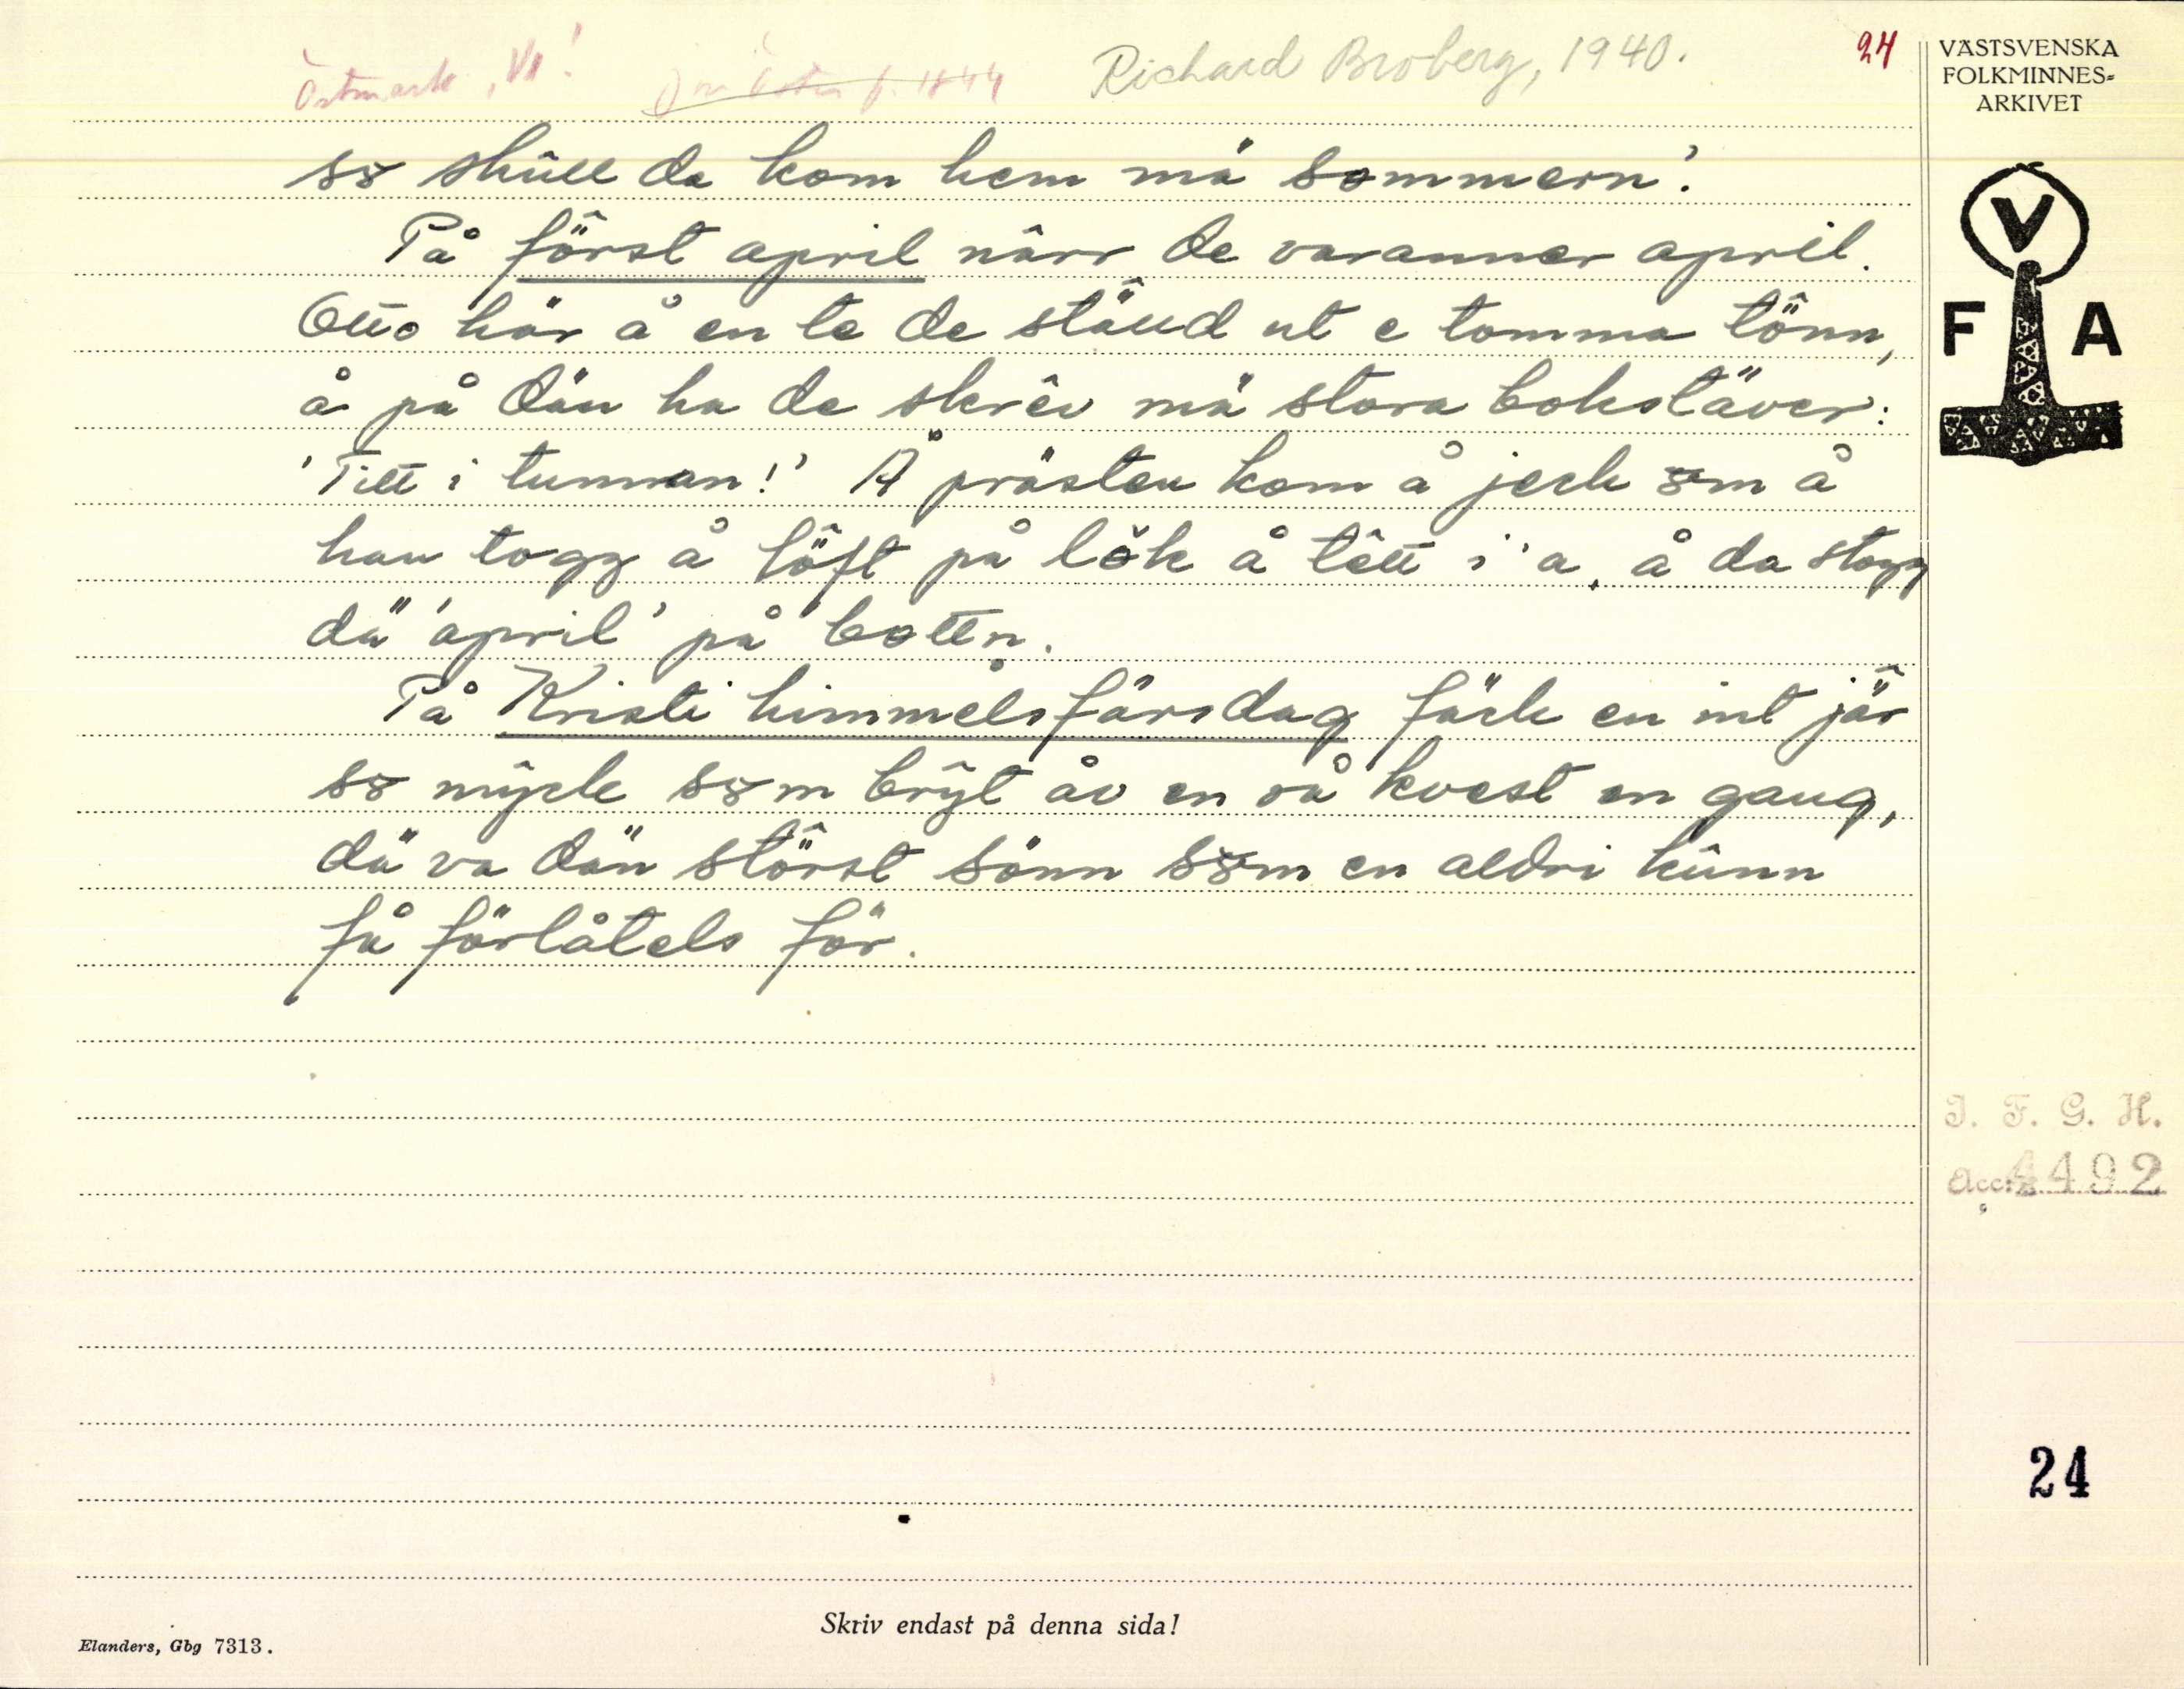 Östmark, Vl. Richard Broberg, 1940. 24
VÄSTSVENSKA
FOLKMINNES-
ARKIVET
V
F A
sɤ skûll da kom hem mä sommern'.
På först april nârr de varanner april.
Otto här å en te de ställd ut e tomma tönn,
å på dän ha de skrêv mä stora bokstäver:
'Titt i tunnan!' Å prästen kom å jeck ɤm å
han togg å löft på lok å têtt i'a, å da stogg
dä 'april' på bottn.
På Kristi himmelsfärsdag fäck en int jär
sɤ mycke sɤm brŷt åv en så kvest en gang,
dä va dän störst sönn sɤm en aldri kûnn
få förlåtels för.
I. F. G. H.
Acc. 4492
24
Skriv endast på denna sida!
Elanders, Gbg 7313.